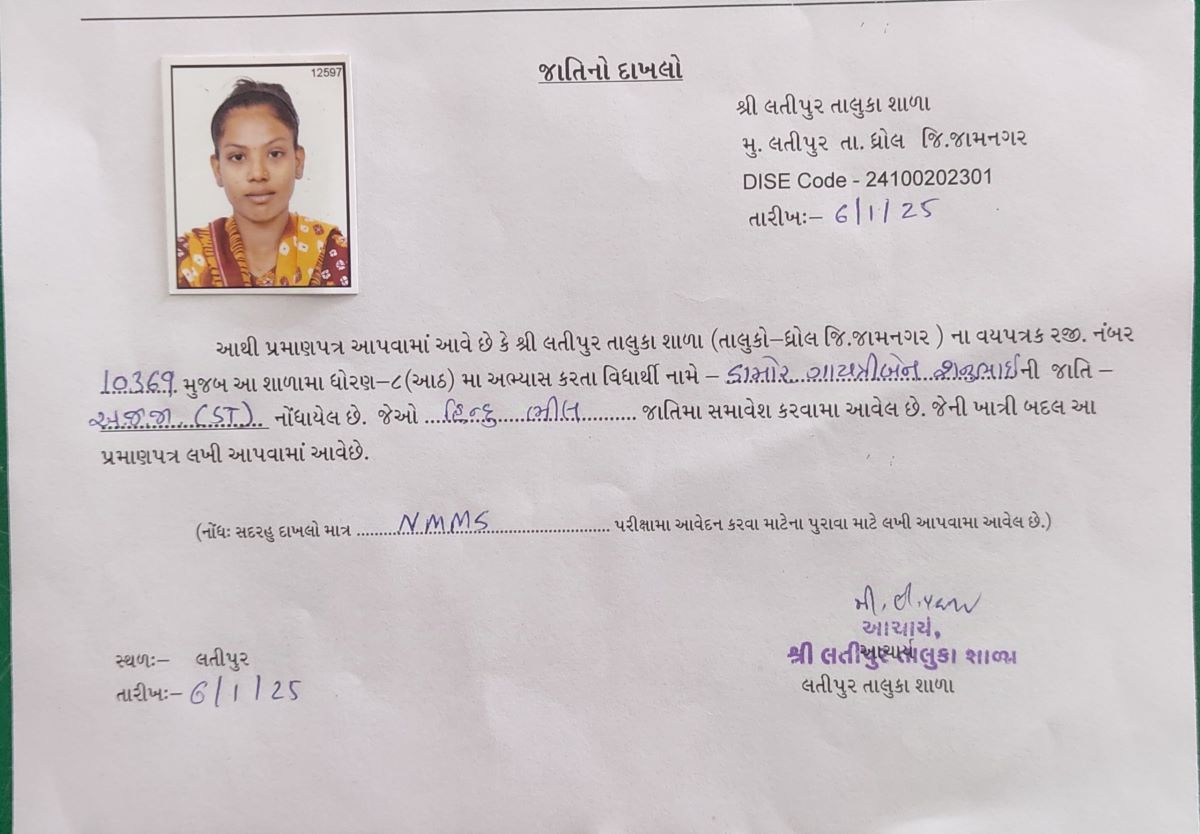 12597
જાતિનો દાખલો
શ્રી લતીપુર તાલુકા શાળા
મુ. લતીપુર તા. ધ્રોલ જિ.જામનગર
DISE Code - 24100202301
તારીખઃ– 6/1/25
આથી પ્રમાણપત્ર આપવામાં આવે છે કે શ્રી લતીપુર તાલુકા શાળા (તાલુકો–ધ્રોલ જિ.જામનગર ) ના વયપત્રક રજી. નંબર
10369 મુજબ આ શાળામા ધોરણ–૮(આઠ) મા અભ્યાસ કરતા વિધાર્થી નામે – ડામોર ગાયત્રીબેન શનુભાઇની જાતિ –
અ.જ.જા. (ST) નોંધાયેલ છે. જેઓ ....હિન્દુ ભીલ........ જાતિમા સમાવેશ કરવામા આવેલ છે. જેની ખાત્રી બદલ આ
પ્રમાણપત્ર લખી આપવામાં આવેછે.
(નોંધઃ સદરહુ દાખલો માત્ર ........NMMS........................ પરીક્ષામા આવેદન કરવા માટેના પુરાવા માટે લખી આપવામા આવેલ છે.)
આચાર્ય,
શ્રી લતીપુર તાલુકા શાળા
આચાર્ય
લતીપુર તાલુકા શાળા
સ્થળઃ– લતીપુર
તારીખઃ– 6/1/25